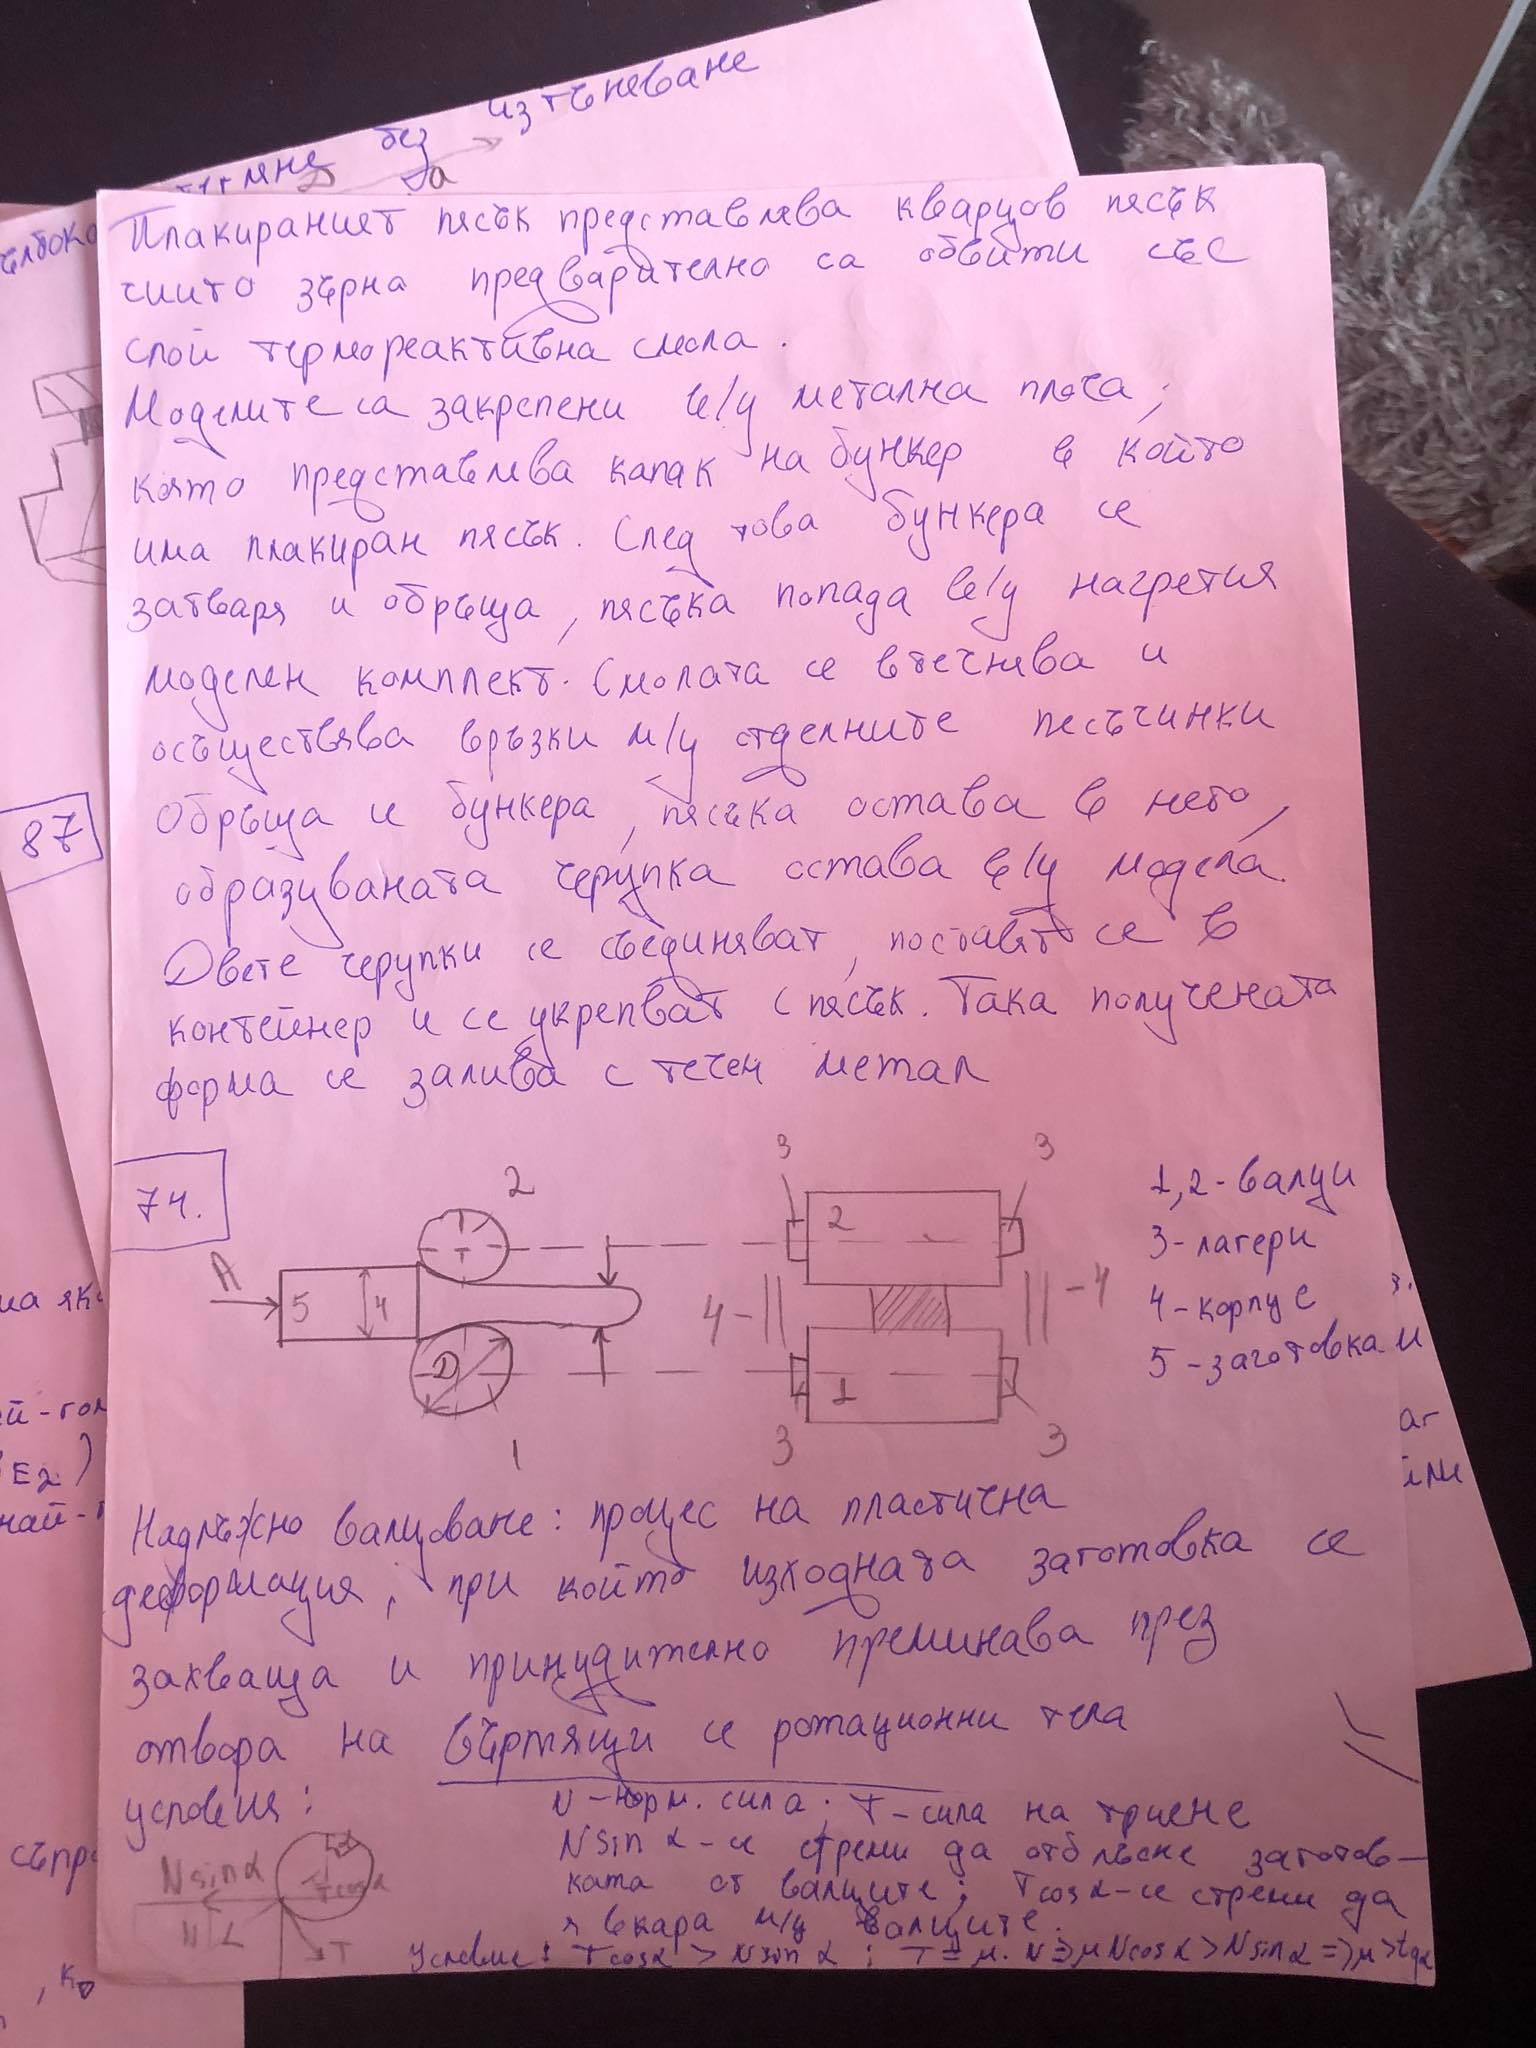 без изтъняване
а
Плакираният пясък представлява кварцов пясък
чиито зърна предварително са обвити със
слой термореактивна смола.
Моделите са закрепени в/у метална плоча,
която представлява капак на бункер в който
има плакиран пясък. След това бункера се
затваря и обръща, пясъка попада в/у нагретия
моделен комплект. Смолата се втечнява и
осъществява връзки м/у отделните песъчинки
Обръща се бункера, пясъка остава в него,
образуваната черупка остава в/у модела.
Двете черупки се съединяват, поставят се в
контейнер и се укрепват с пясък. Така получената
форма се залива с течен метал
87
74.
2
3 3
1,2-валци
А
5
4
Т
2
3-лагери
4-
-4
4-корпус
D
1
5-заготовка
1
3
3
Надлъжно валцоване: процес на пластична
деформация, при който изходната заготовка се
захваща и принудително преминава през
отвора на въртящи се ротационни тела
условия:
N-норм. сила; T-сила на триене
Nsinα-се стреми да отблъсне заготов-
ката от валците; Tcosα-се стреми да
я вкара м/у валците.
Nsinα
Tcosα
T
Условие: Tcosα > Nsinα ; T=μ.N⇒μNcosα>Nsinα=>μ>tgα